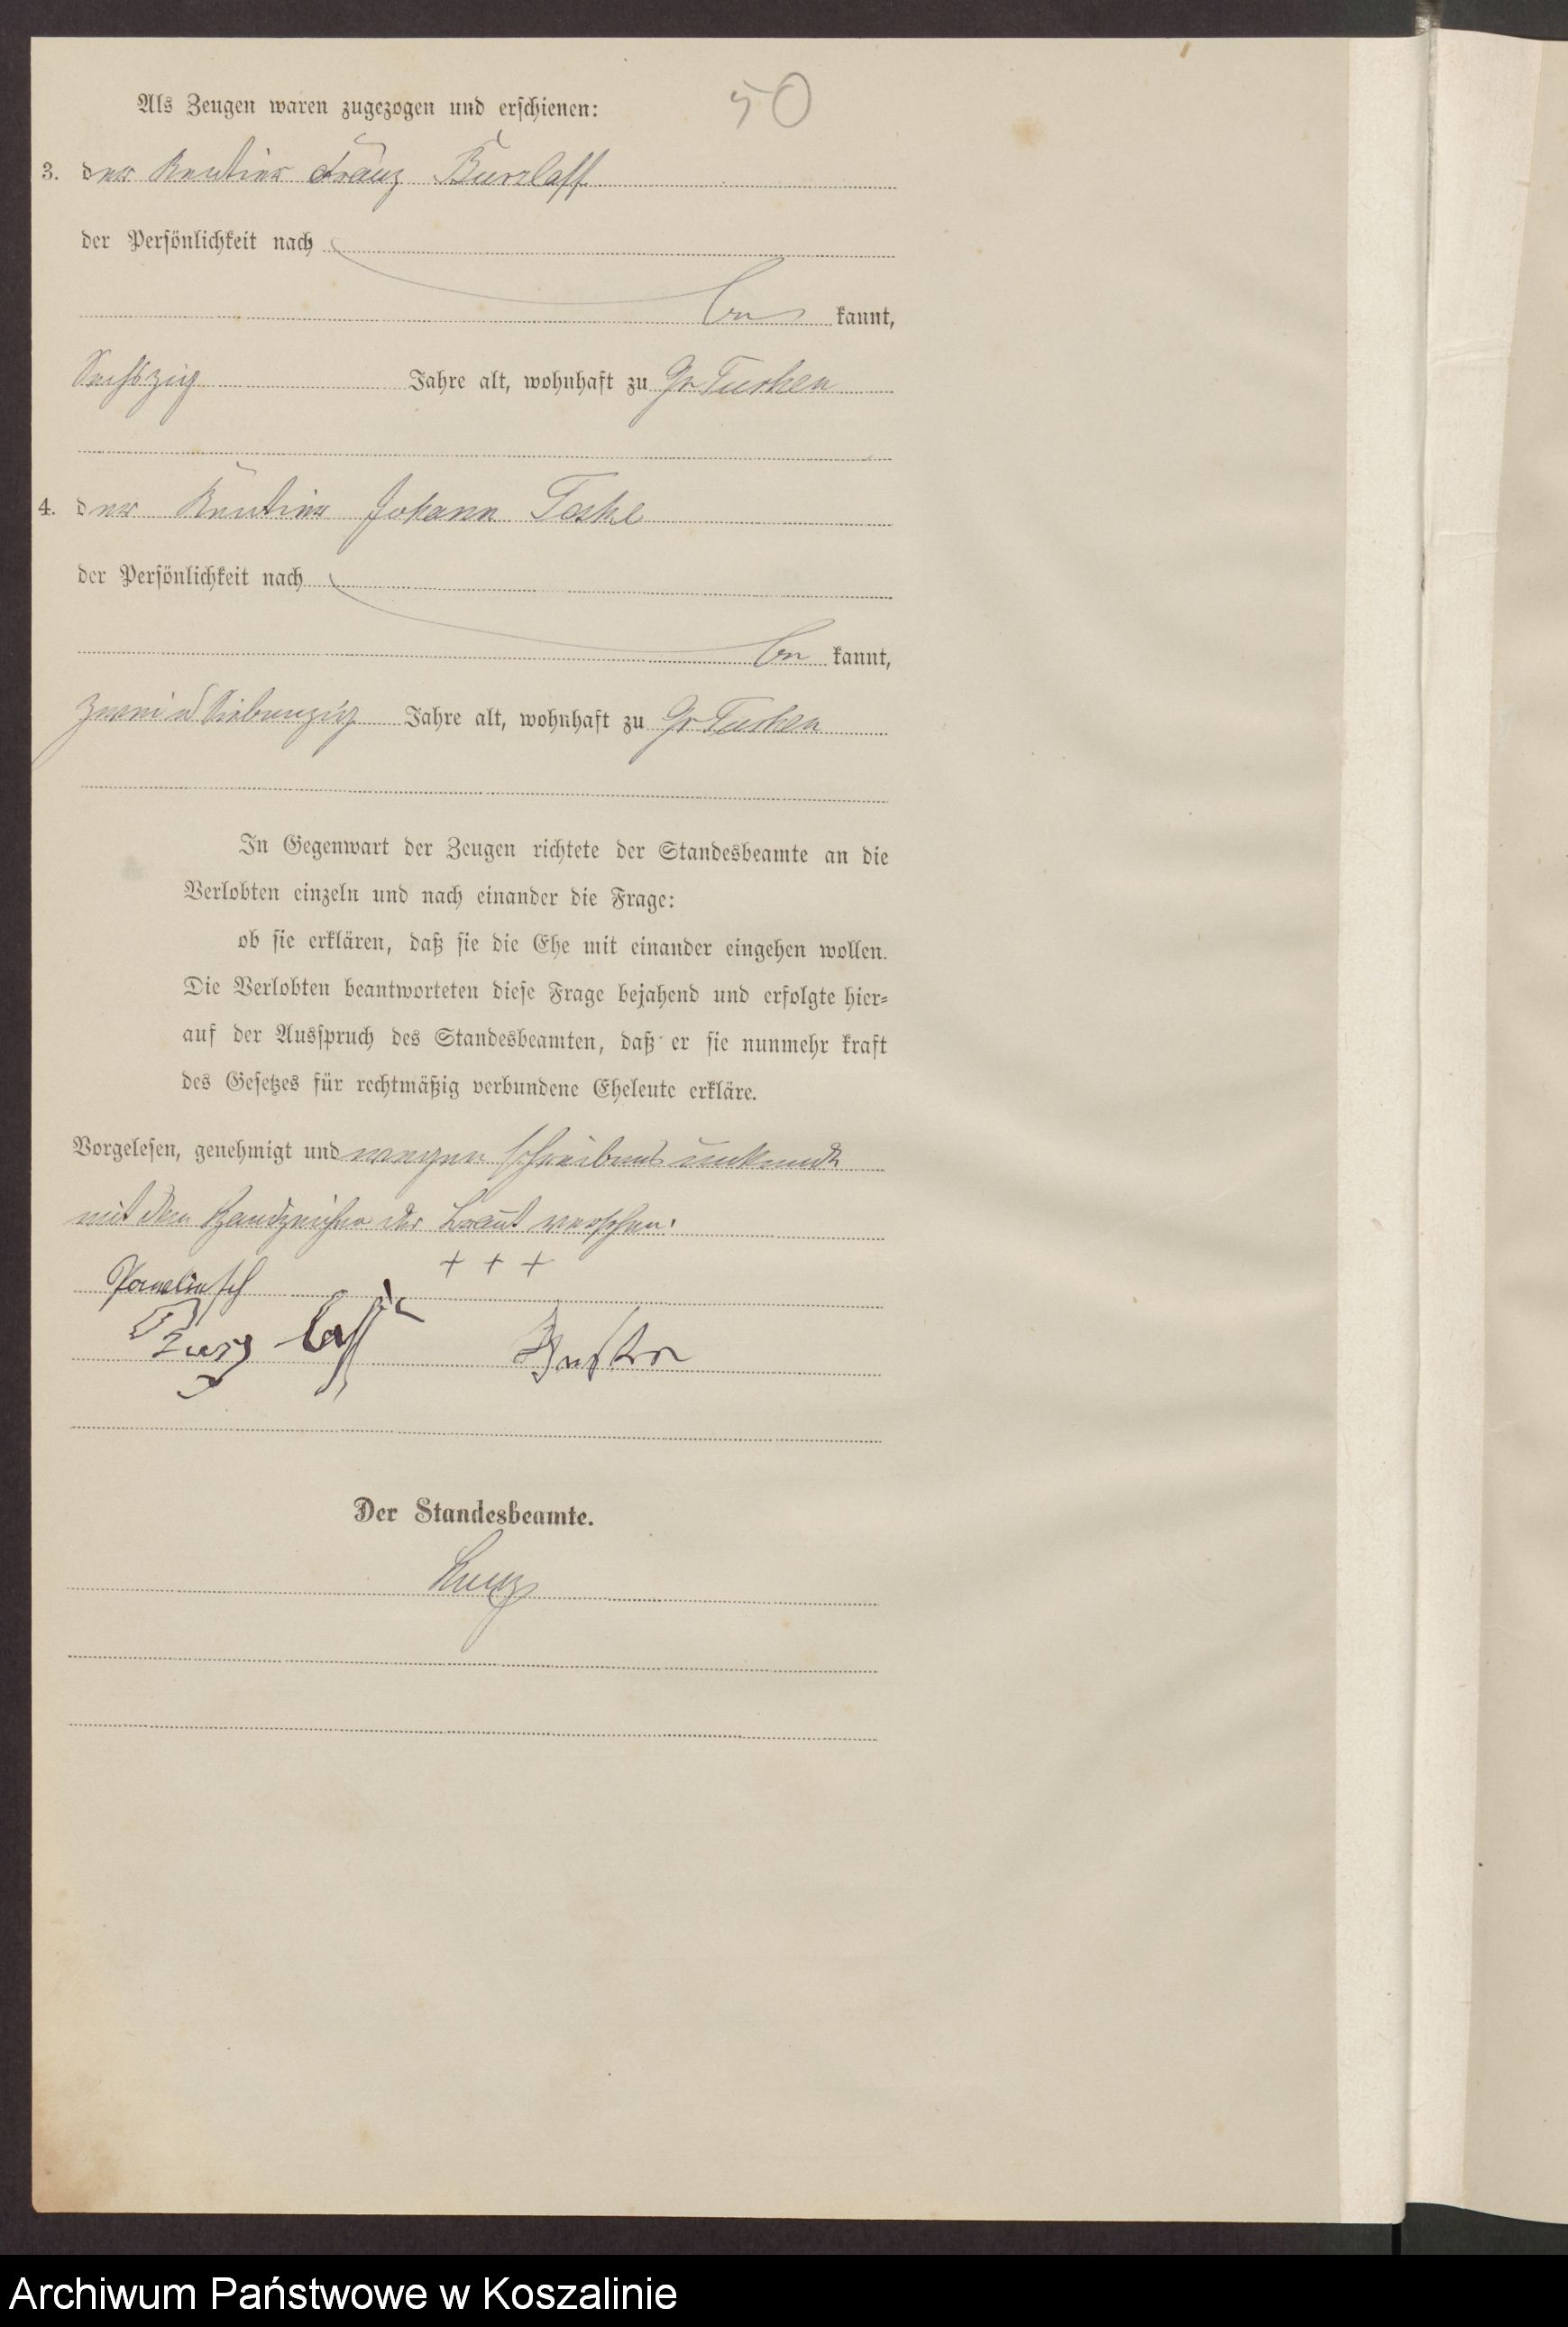 50
Als Zeugen waren zugezogen und erschienen:
3. der Rentier Franz Burzlaff
der Persönlichkeit nach
be kannt,
Sechszig Jahre alt, wohnhaft zu Gr Tuchen
4. der Rentier Johann Teske
der Persönlichkeit nach
be kannt,
zwei u Siebenzig Jahre alt, wohnhaft zu Gr Tuchen
In Gegenwart der Zeugen richtete der Standesbeamte an die
Verlobten einzeln und nach einander die Frage:
ob sie erklären, daß sie die Ehe mit einander eingehen wollen.
Die Verlobten beantworteten diese Frage bejahend und erfolgte hier-
auf der Ausspruch des Standesbeamten, daß er sie nunmehr kraft
des Gesetzes für rechtmäßig verbundene Eheleute erkläre.
Vorgelesen, genehmigt und wegen Schreibens unkunde
mit dem Handzeichen der Braut versehen.
+ + +
Burzlaff
Der Standesbeamte.
Archiwum Państwowe w Koszalinie